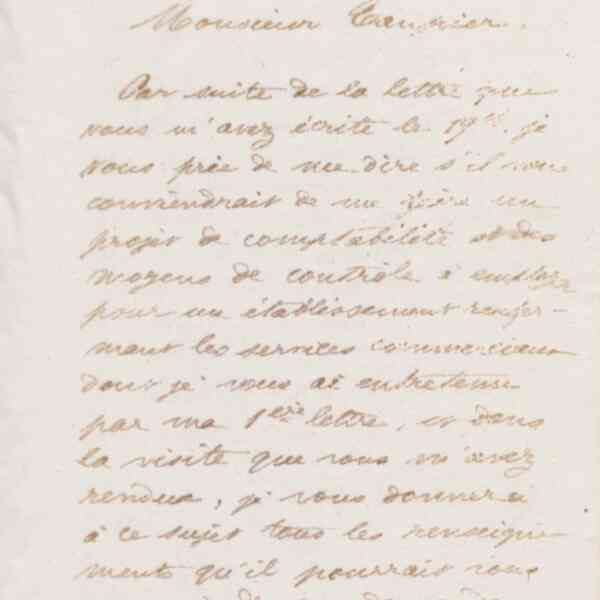 Monsieur
Par suite de la lettre que
vous m'avez écrite le 17 ct. je
vous prie de me dire s'il vous
conviendrait de me faire un
projet de comptabilité et des
moyens de contrôle à employer
pour un établissement renfer-
mant les services commerciaux
dont je vous ai entretenu
par ma 1ère lettre, et dans
la visite que vous m'avez
rendue, je vous donnerai
à ce sujet tous les renseigne-
ments qu'il pourrait vous